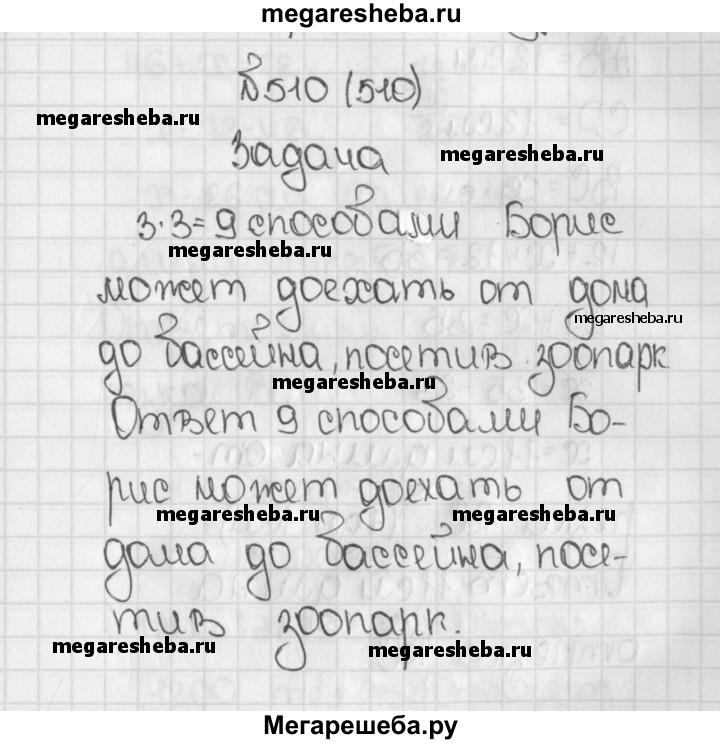 megaresheba.ru
№510 (510)
megaresheba.ru
Задача
megaresheba.ru
3·3=9 способами Борис
megaresheba.ru
может доехать от дома
megaresheba.ru
до бассейна, посетив зоопарк
megaresheba.ru
Ответ 9 способами Бо-
рис может доехать от
megaresheba.ru megaresheba.ru
дома до бассейна, посе-
тив зоопарк.
megaresheba.ru megaresheba.ru
Мегарешеба.ру